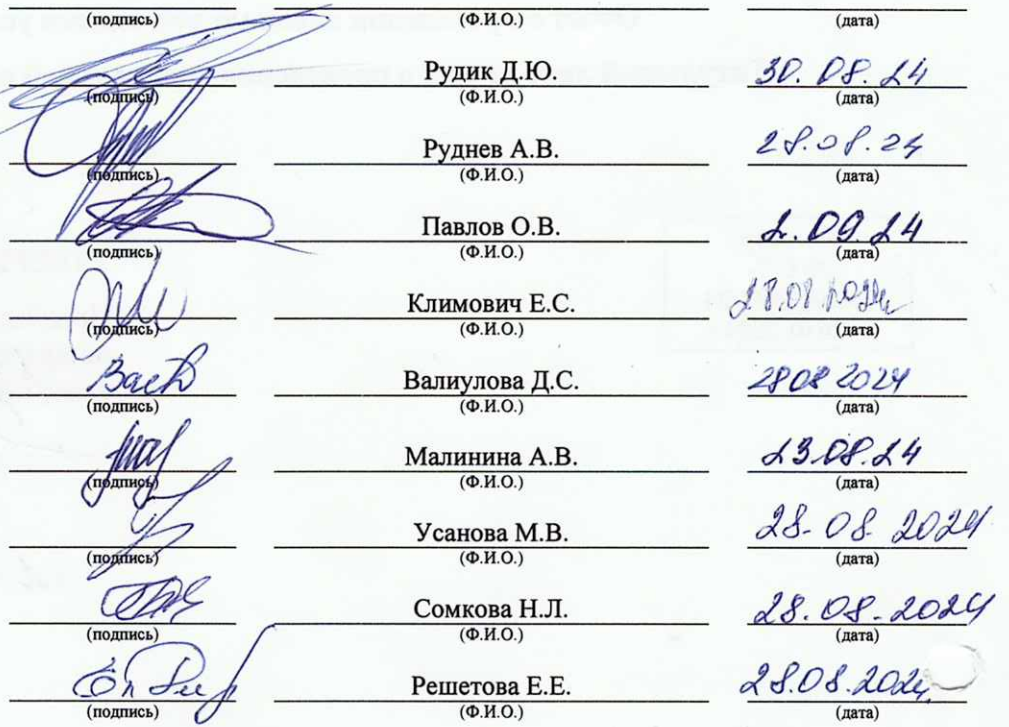 (подпись) (Ф.И.О.) (дата)
Рудик Д.Ю. 30.08.24
(подпись) (Ф.И.О.) (дата)
Руднев А.В. 28.08.24
(подпись) (Ф.И.О.) (дата)
Павлов О.В. 2.09.24
(подпись) (Ф.И.О.) (дата)
Климович Е.С. 28.08.2024
(подпись) (Ф.И.О.) (дата)
Валиулова Д.С. 28 08 2024
(подпись) (Ф.И.О.) (дата)
Малинина А.В. 23.08.24
(подпись) (Ф.И.О.) (дата)
Усанова М.В. 28.08.2024
(подпись) (Ф.И.О.) (дата)
Сомкова Н.Л. 28.08.2024
(подпись) (Ф.И.О.) (дата)
Решетова Е.Е. 28.08.2024
(подпись) (Ф.И.О.) (дата)